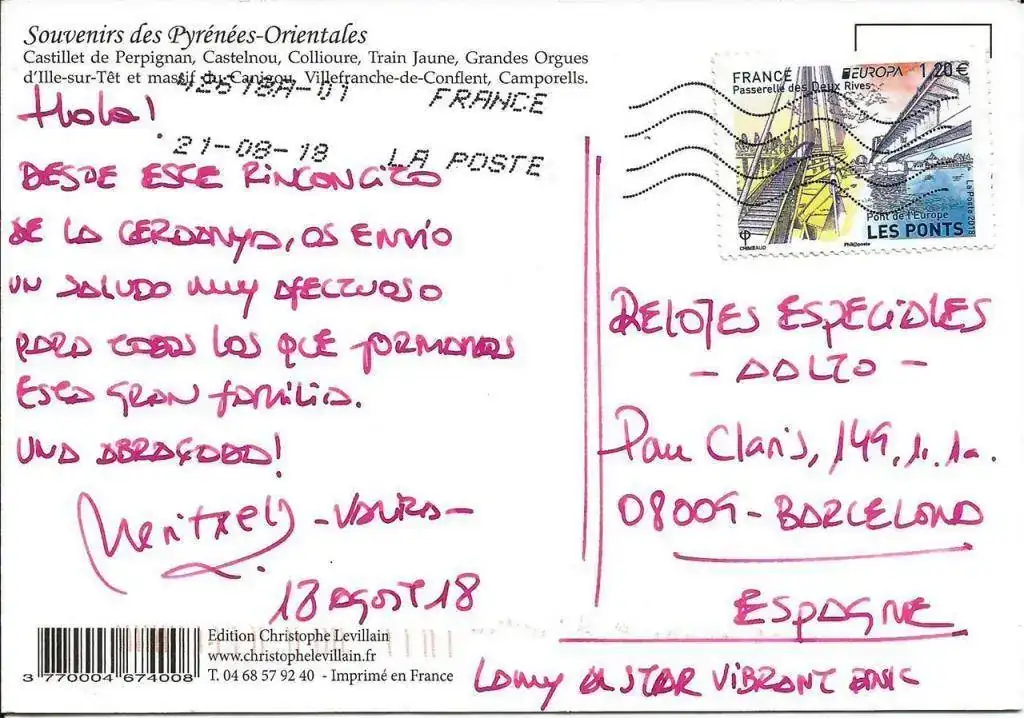 Souvenirs des Pyrénées-Orientales
Castillet de Perpignan, Castelnou, Collioure, Train Jaune, Grandes Orgues
d'Ille-sur-Têt et massif du Canigou, Villefranche-de-Conflent, Camporells.
42618A-01 FRANCE
21-08-18 LA POSTE
Hola!
DESDE ESTE RINCONCITO
DE LA CERDANYA, OS ENVÍO
UN SALUDO MUY AFECTUOSO
PARA TODOS LOS QUE FORMAMOS
ESTA GRAN FAMILIA.
UNA ABRAÇADA!
Meritxell -VALIRA-
18 AGOST 18
3 770004 674008
Edition Christophe Levillain
www.christophelevillain.fr
T. 04 68 57 92 40 - Imprimé en France
FRANCE EUROPA 1,20€
Passerelle des Deux Rives
Pont de l'Europe
LES PONTS
La Poste 2018
CHIMBAUD Phil@poste
RELOJES ESPECIALES
- AALTO -
Pau Claris, 149, 1r. 1a.
08009 - BARCELONA
ESPAGNE
LAMY ALSTAR VIBRANT PINK